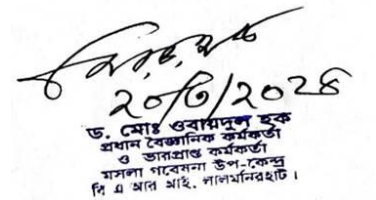 ২০/৩/২০২৪
ড. মোঃ ওবায়দুল হক
প্রধান বৈজ্ঞানিক কর্মকর্তা
ও ভারপ্রাপ্ত কর্মকর্তা
মসলা গবেষনা উপ-কেন্দ্র
বি এ আর আই, লালমনিরহাট।